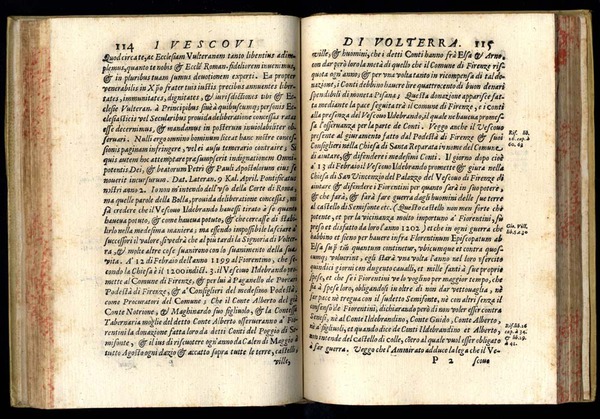 114 I VESCOVI
Quod circa te, ac Ecclesiam Vulteranen tanto libentius adim-
plemus, quanto te nobis & Eccl'e Roman, fideliorem inuenimus,
& in pluribus tuam sumus deuotionem experti. Ea propter
venerabilis in X̃po frater tuis iustis precibus annuentes liber-
tates, immunitates, dignitates, & iurisdictiones tibi & Ec-
clesiæ Vulteran. à Principibus siuè à quibuscumque personis Ec-
clesiasticis vel Secularibus prouida deliberatione concessas ratas
esse decernimus, & mandamus in posterum inuiolabiliter ob-
seruari. Nulli ergo omnino hominum liceat hanc nostre conces-
sionis paginam infringere, vel ei ausu temerario contraire; Si
quis autem hoc attemptare præsumpserit indignationem Omni-
potentis Dei, & beatorum Petri & Pauli Apostolorum eius se
nouerit incursurum. Dat. Lateran. 9 Kal. April. Pontificatus
nostri anno 2. Io non m'intendo dell'vso della Corte di Roma,
ma quelle parole della Bolla, prouida deliberatione concessas, mi
fà credere che il Vescouo Ildebrando hauesse tirato à se quanto
haueua potuto, & come haueua potuto, & che cercasse di stabi-
lirlo nella medesima maniera; ma essendo impossibile lasciare à
successori il valore, si vedrà che al più tardi la Signoria di Volter-
ra, & molte altre cose suanirono con lo suanimento della sua
vita. A 12 di Febraio dell'anno 1199 al Fiorentino, che se-
condo la Chiesa è il 1200 indict. 3. il Vescouo Ildebrando pro-
mette al Comune di Firenze, & per lui à Paganello de' Porcari
Podestà di Firenze, & a' Consiglieri del medesimo Podestà,
come Procuratori del Comune; Che il Conte Alberto del già
Conte Notrione, & Maghinardo suo figliuolo, & la Contessa
Tabernaria moglie del detto Conte Alberto osserueranno a' Fio-
rentini la donazione fatta loro da detti Conti del Poggio di Se-
mifonte, & il ius di riscuotere ogni anno da Calen di Maggio à
tutto Agosto ogni dazio & accatto sopra tutte le terre, castelli,
ville,
DI VOLTERRA. 115
ville, & huomini, che i detti Conti hanno frà Elsa & Arno,
con dar però loro la metà di quello che il Comune di Firenze ris-
quota ogni anno; & per vna volta tanto in ricompensa di tal do-
nazione, i Conti debbino hauere lire quattrocento di buon denari
spendibili di moneta Pisana; Questa donazione apparisce fat-
ta mediante la pace seguita trà il Comune di Firenze, e i conti
alla presenza del Vescouo Ildebrando, al quale ne haueua promes-
sa l'osseruanza per la parte de Conti. Veggo anche il Vescouo
presente al giuramento fatto dal Podestà di Firenze & suoi
Consiglieri nella Chiesa di Santa Reparata in nome del Comune
di aiutare, & difendere i medesimi Conti. Il giorno dopò cioè
à 13 di Febraio il Vescouo Ildebrando promette & giura nella
Chiesa di San Vincenzio del Palazzo del Vescouo di Firenze di
aiutare & difendere i Fiorentini per quanto sarà in suo potere,
& che farà, & farà fare guerra dagli huomini delle sue terre
al castello di Semifonte etc. (Questo castello non men forte che
potente, et per la vicinanza molto importuno à Fiorentini, fù
preso et disfatto da loro l'anno 1202) et che in ogni guerra che
habbino et sieno per hauere infra Florentinum Episcopatum ab
Elsa susum quantum continetur, vbicumque et contra quos-
cumque voluerint, egli starà vna volta l'anno nel loro esercito
quindici giorni con dugento caualli, et mille fanti à sue proprie
spese, et che se i Fiorentini ve lo voglino per maggior tempo, che
stia à spese loro, obligandosi in oltre di non dar vettouaglia, nè
far pace nè tregua con il sudetto Semifonte, nè con altri senza il
consenso de Fiorentini, dichiarando però di non voler esser contra
Senesi, nè al Conte Ildebrandino, Conte Guido, Conte Alberto,
nè a' figliuoli, et quando dice de Conti Ildebrandino et Alberto,
non intende del castello di Colle, còtro al quale vuol esser obligato
à far guerra. Veggo che l'Ammirato adduce la lega che il Ve-
P 2 scouo
Rif. lib.
26. cap. à
60. 63
Gio. Vill.
lib. 5. c. 30
Rif. lib. 26
cap. à 34.
& lib. 29.
à 41.